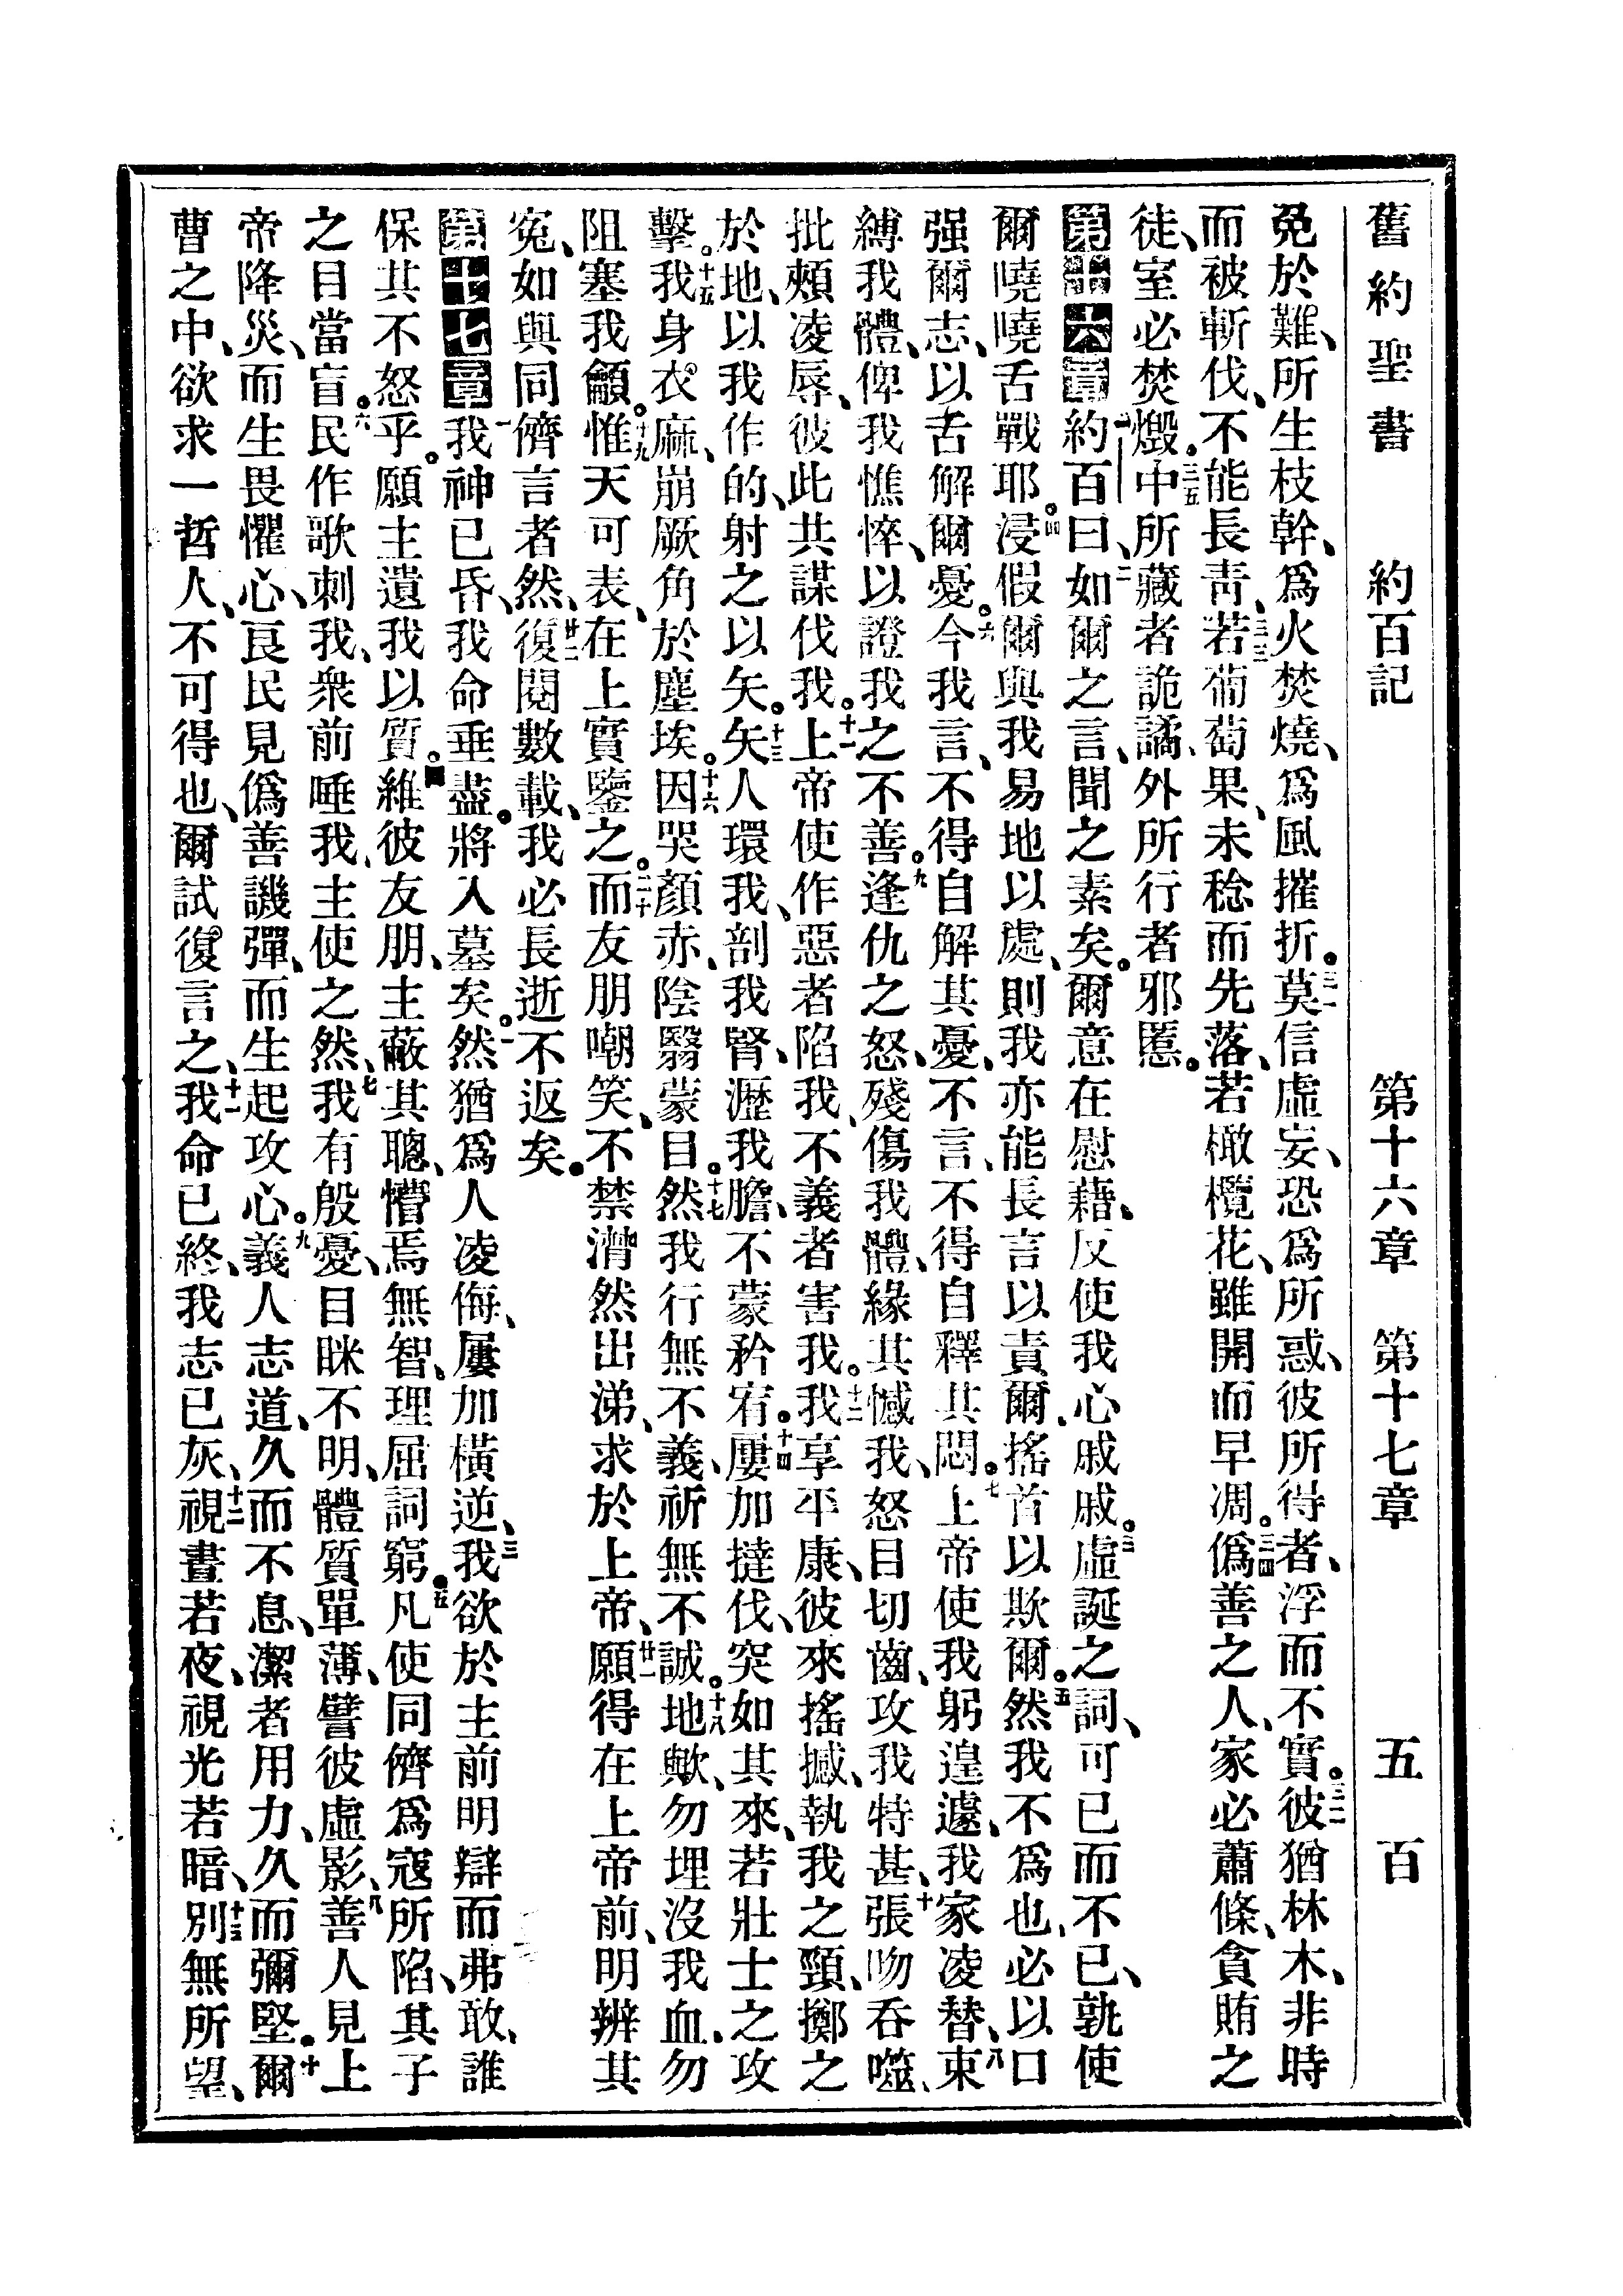 舊約聖書 約百記 第十六章 第十七章 五百
免於難、所生枝幹、爲火焚燒、爲風摧折。三一莫信虛妄、恐爲所惑、彼所得者、浮而不實。三二彼猶林木、非時
而被斬伐、不能長靑、三三若葡萄果、未稔而先落、若橄欖花、雖開而早凋。三四僞善之人、家必蕭條、貪賄之
徒、室必焚燬。三五中所藏者詭譎、外所行者邪慝。
第十六章一約百曰、二如爾之言、聞之素矣。爾意在慰藉、反使我心戚戚。三虛誕之詞、可已而不已、孰使
爾嘵嘵舌戰耶。四浸假爾與我易地以處、則我亦能長言以責爾、搖首以欺爾。五然我不爲也、必以口
强爾志、以舌解爾憂。六今我言、不得自解其憂、不言、不得自釋其悶。七上帝使我躬遑遽、我家凌替、八束
縛我體、俾我憔悴、以證我之不善。九逢仇之怒、殘傷我體、緣其憾我、怒目切齒、攻我特甚、十張吻吞噬、
批頰凌辱、彼此共謀伐我。十一上帝使作惡者陷我、不義者害我。十二我享平康、彼來搖撼、執我之頸、擲之
於地、以我作的、射之以矢。十三矢人環我、剖我腎、瀝我膽、不蒙矜宥。十四屢加撻伐、突如其來、若壯士之攻
擊。十五我身衣麻、崩厥角於塵埃。十六因哭顏赤、陰翳蒙目。十七然我行無不義、祈無不誠。十八地歟、勿埋沒我血、勿
阻塞我籲。十九惟天可表、在上實鑒之。二十而友朋嘲笑、不禁潸然出涕、求於上帝、廿一願得在上帝前、明辨其
冤、如與同儕言者然、廿二復閱數載、我必長逝不返矣。
第十七章一我神已昏、我命垂盡。將入墓矣。二然猶爲人凌侮、屢加橫逆、三我欲於主前明辯而弗敢、誰
保其不怒乎。願主遺我以質。四維彼友朋、主蔽其聰、懵焉無智、理屈詞窮。五凡使同儕爲寇所陷、其子
之目當盲。六民作歌刺我、衆前唾我、主使之然、七我有殷憂、目眯不明、體質單薄、譬彼虛影、八善人見上
帝降災、而生畏懼心、良民見僞善譏彈、而生起攻心。九義人志道、久而不息、潔者用力、久而彌堅。十爾
曹之中、欲求一哲人、不可得也、爾試復言之、十一我命已終、我志已灰、十二視晝若夜、視光若暗、十三別無所望、